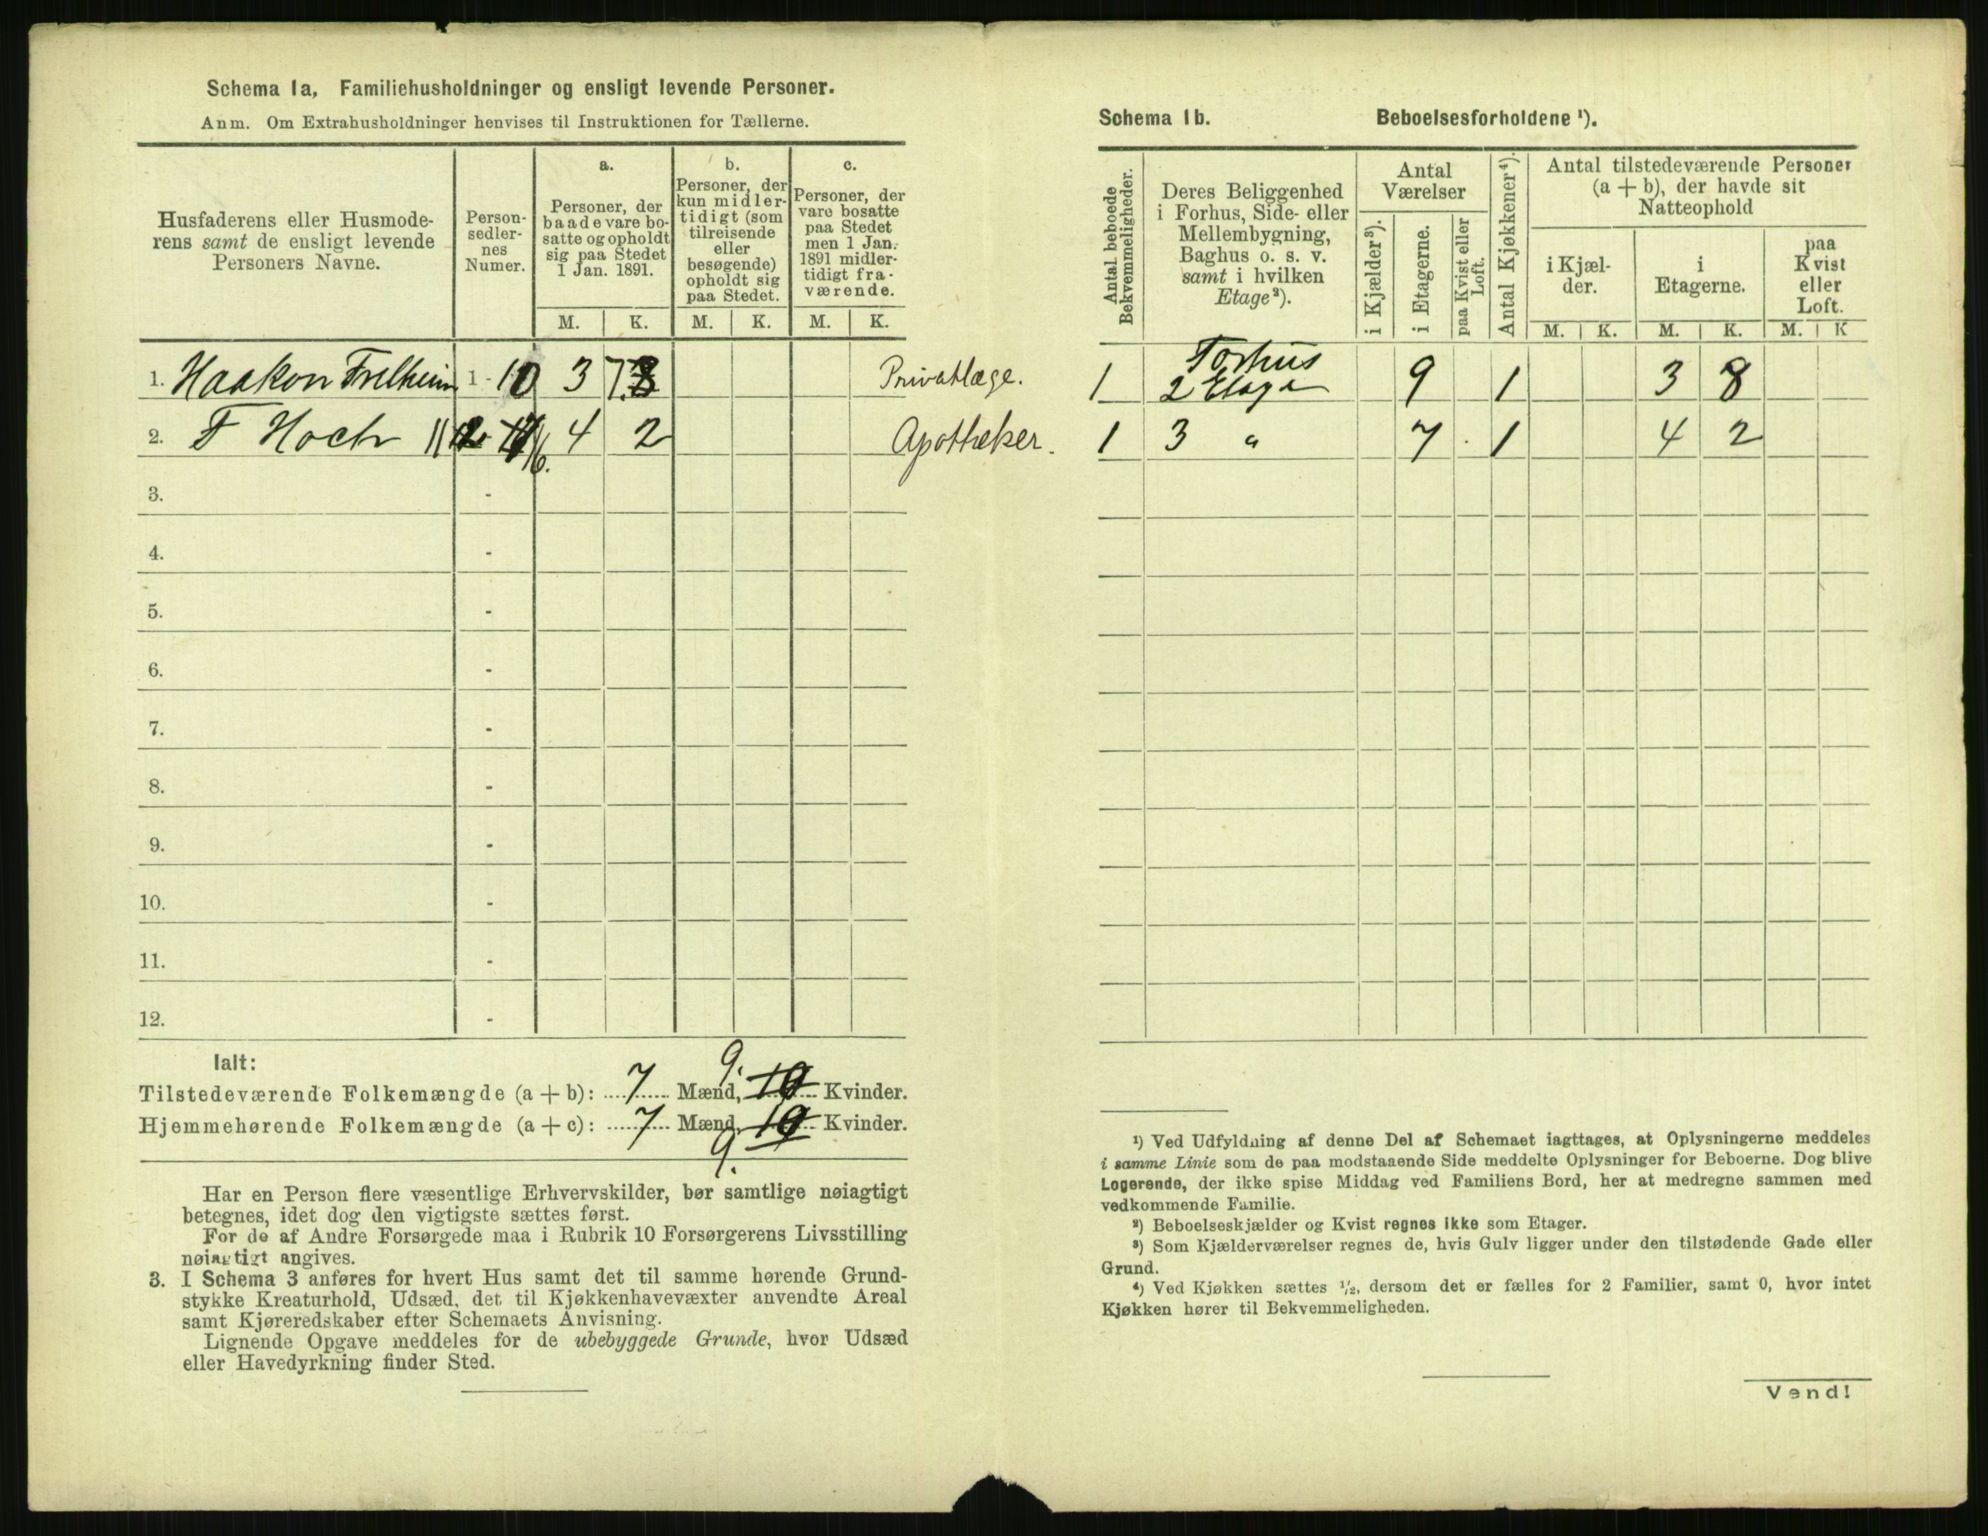 Schema 1a, Familiehusholdninger og ensligt levende Personer.
Anm. Om Extrahusholdninger henvises til Instruktionen for Tællerne.
Husfaderens eller Husmoderens samt de ensligt levende Personers Navne.
Person-
sedler-
nes
Numer.
a.
Personer, der
baade vare bo-
satte og opholdt
sig paa Stedet
1 Jan. 1891.
b.
Personer, der
kun midler-
tidigt (som
tilreisende
eller
besøgende)
opholdt sig
paa Stedet.
c.
Personer, der
vare bosatte
paa Stedet
men 1 Jan.
1891 midler-
tidigt fra-
værende.
M. K. M. K. M. K.
1. Haakon Frelheim 1 - 10 3 7. 8 Privatlæge.
2. F Hoch 11 4 2 Apotheker.
3. -
4. -
5. -
6. -
7. -
8. -
9. -
10. -
11. -
12. -
Ialt:
Tilstedeværende Folkemængde (a + b): 7 Mænd, 9. 10 Kvinder.
Hjemmehørende Folkemængde (a + c): 7 Mænd, 9. 10 Kvinder.
Har en Person flere væsentlige Erhvervskilder, bør samtlige nøiagtigt
betegnes, idet dog den vigtigste sættes først.
For de af Andre Forsørgede maa i Rubrik 10 Forsørgerens Livsstilling
nøiagtigt angives.
3. I Schema 3 anføres for hvert Hus samt det til samme hørende Grund-
stykke Kreaturhold, Udsæd, det til Kjøkkenhavevæxter anvendte Areal
samt Kjøreredskaber efter Schemaets Anvisning.
Lignende Opgave meddeles for de ubebyggede Grunde, hvor Udsæd
eller Havedyrkning finder Sted.
Schema 1b. Beboelsesforholdene ¹).
Antal beboede
Bekvemmeligheder.
Deres Beliggenhed
i Forhus, Side- eller
Mellembygning,
Baghus o. s. v.
samt i hvilken
Etage²).
Antal
Værelser
i Kjælder³).
i Etagerne.
paa Kvist eller
Loft.
Antal Kjøkkener⁴).
Antal tilstedeværende Personer
(a + b), der havde sit
Natteophold
i Kjæl-
der.
i
Etagerne.
paa
Kvist
eller
Loft.
M. K. M. K. M. K
1 Forhus
2 Etage 9 1 3 8
1 3 " 7 1 4 2
¹) Ved Udfyldning af denne Del af Schemaet iagttages, at Oplysningerne meddeles
i samme Linie som de paa modstaaende Side meddelte Oplysninger for Beboerne. Dog blive
Logerende, der ikke spise Middag ved Familiens Bord, her at medregne sammen med
vedkommende Familie.
²) Beboelseskjælder og Kvist regnes ikke som Etager.
³) Som Kjælderværelser regnes de, hvis Gulv ligger under den tilstødende Gade eller
Grund.
⁴) Ved Kjøkken sættes ½, dersom det er fælles for 2 Familier, samt 0, hvor intet
Kjøkken hører til Bekvemmeligheden.
Vend!